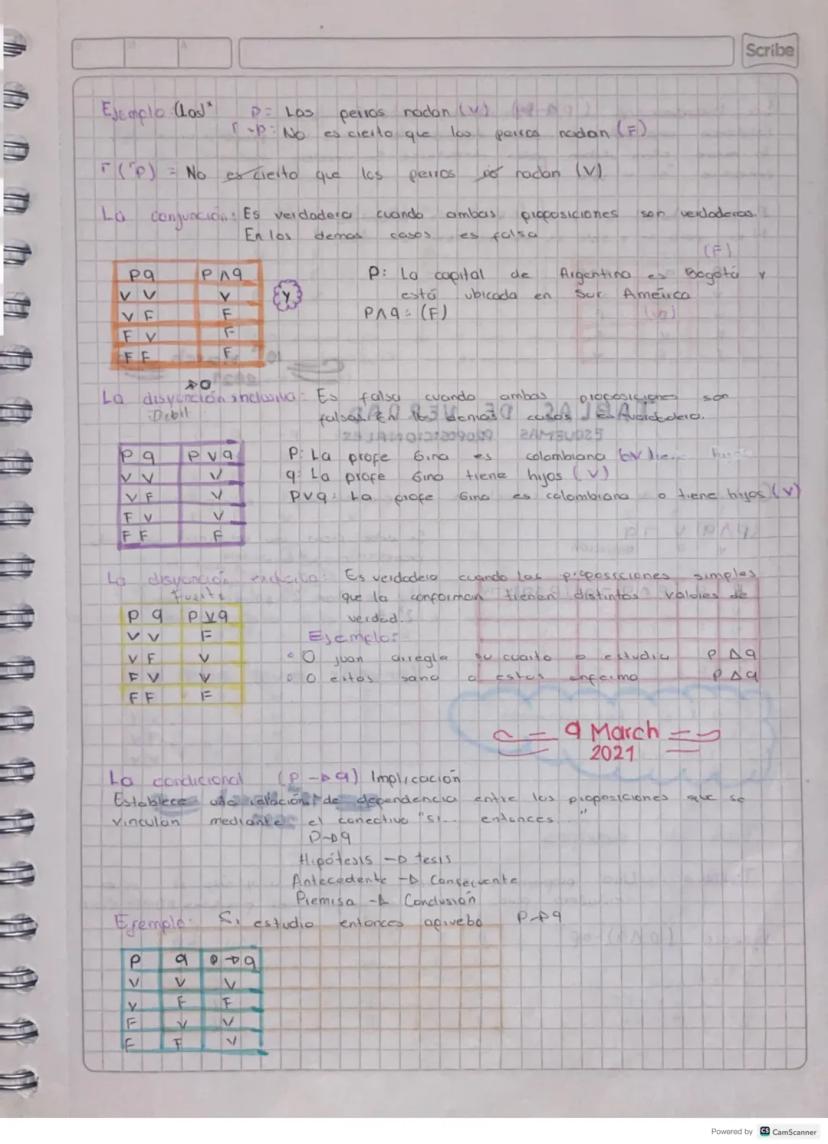 Scribe
Ejemplo P= Los perros nadan (V)
¬P: No es cierto que los perros nadan (F)
¬(¬p) = No es cierto que los perros no nadan (V)
La conjunción: Es verdadera cuando ambas proposiciones son verdaderas.
En los demas casos es falsa
(F)
P q P ∧ q
V V V
V F F
F V F
F F F
Y
P: La capital de Argentina es Bogotá y
está ubicada en Sur América
P∧q = (F) (V)
O
La disyunción inclusiva: Es falsa cuando ambas proposiciones son
Debil falsas En los demas casos es verdadera.
P q P v q
V V V
V F V
F V V
F F F
P: La profe Gina es colombiana
q: La profe Gina tiene hijos (V)
Pvq: La profe Gina es colombiana o tiene hijos (V)
La disyunción Es verdadera cuando las proposiciones simples
fuerte que la conforman tienen distintos valores de
verdad.
P q P v q
V V F
V F V
F V V
F F F
Ejemplo:
O juan arregla su cuarto o estudia P Δ q
O estas sano o estas enfermo P Δ q
9 March
2021
La condicional (P → q) Implicación
Establece una relación de dependencia entre las proposiciones que se
vinculan mediante el conectivo "si... entonces..."
P→q
Hipótesis → tesis
Antecedente → Consecuente
Premisa → Conclusión
Ejemplo: Si estudio entonces apruebo P→q
P q P→q
V V V
V F F
F V V
F F V
Powered by CS CamScanner